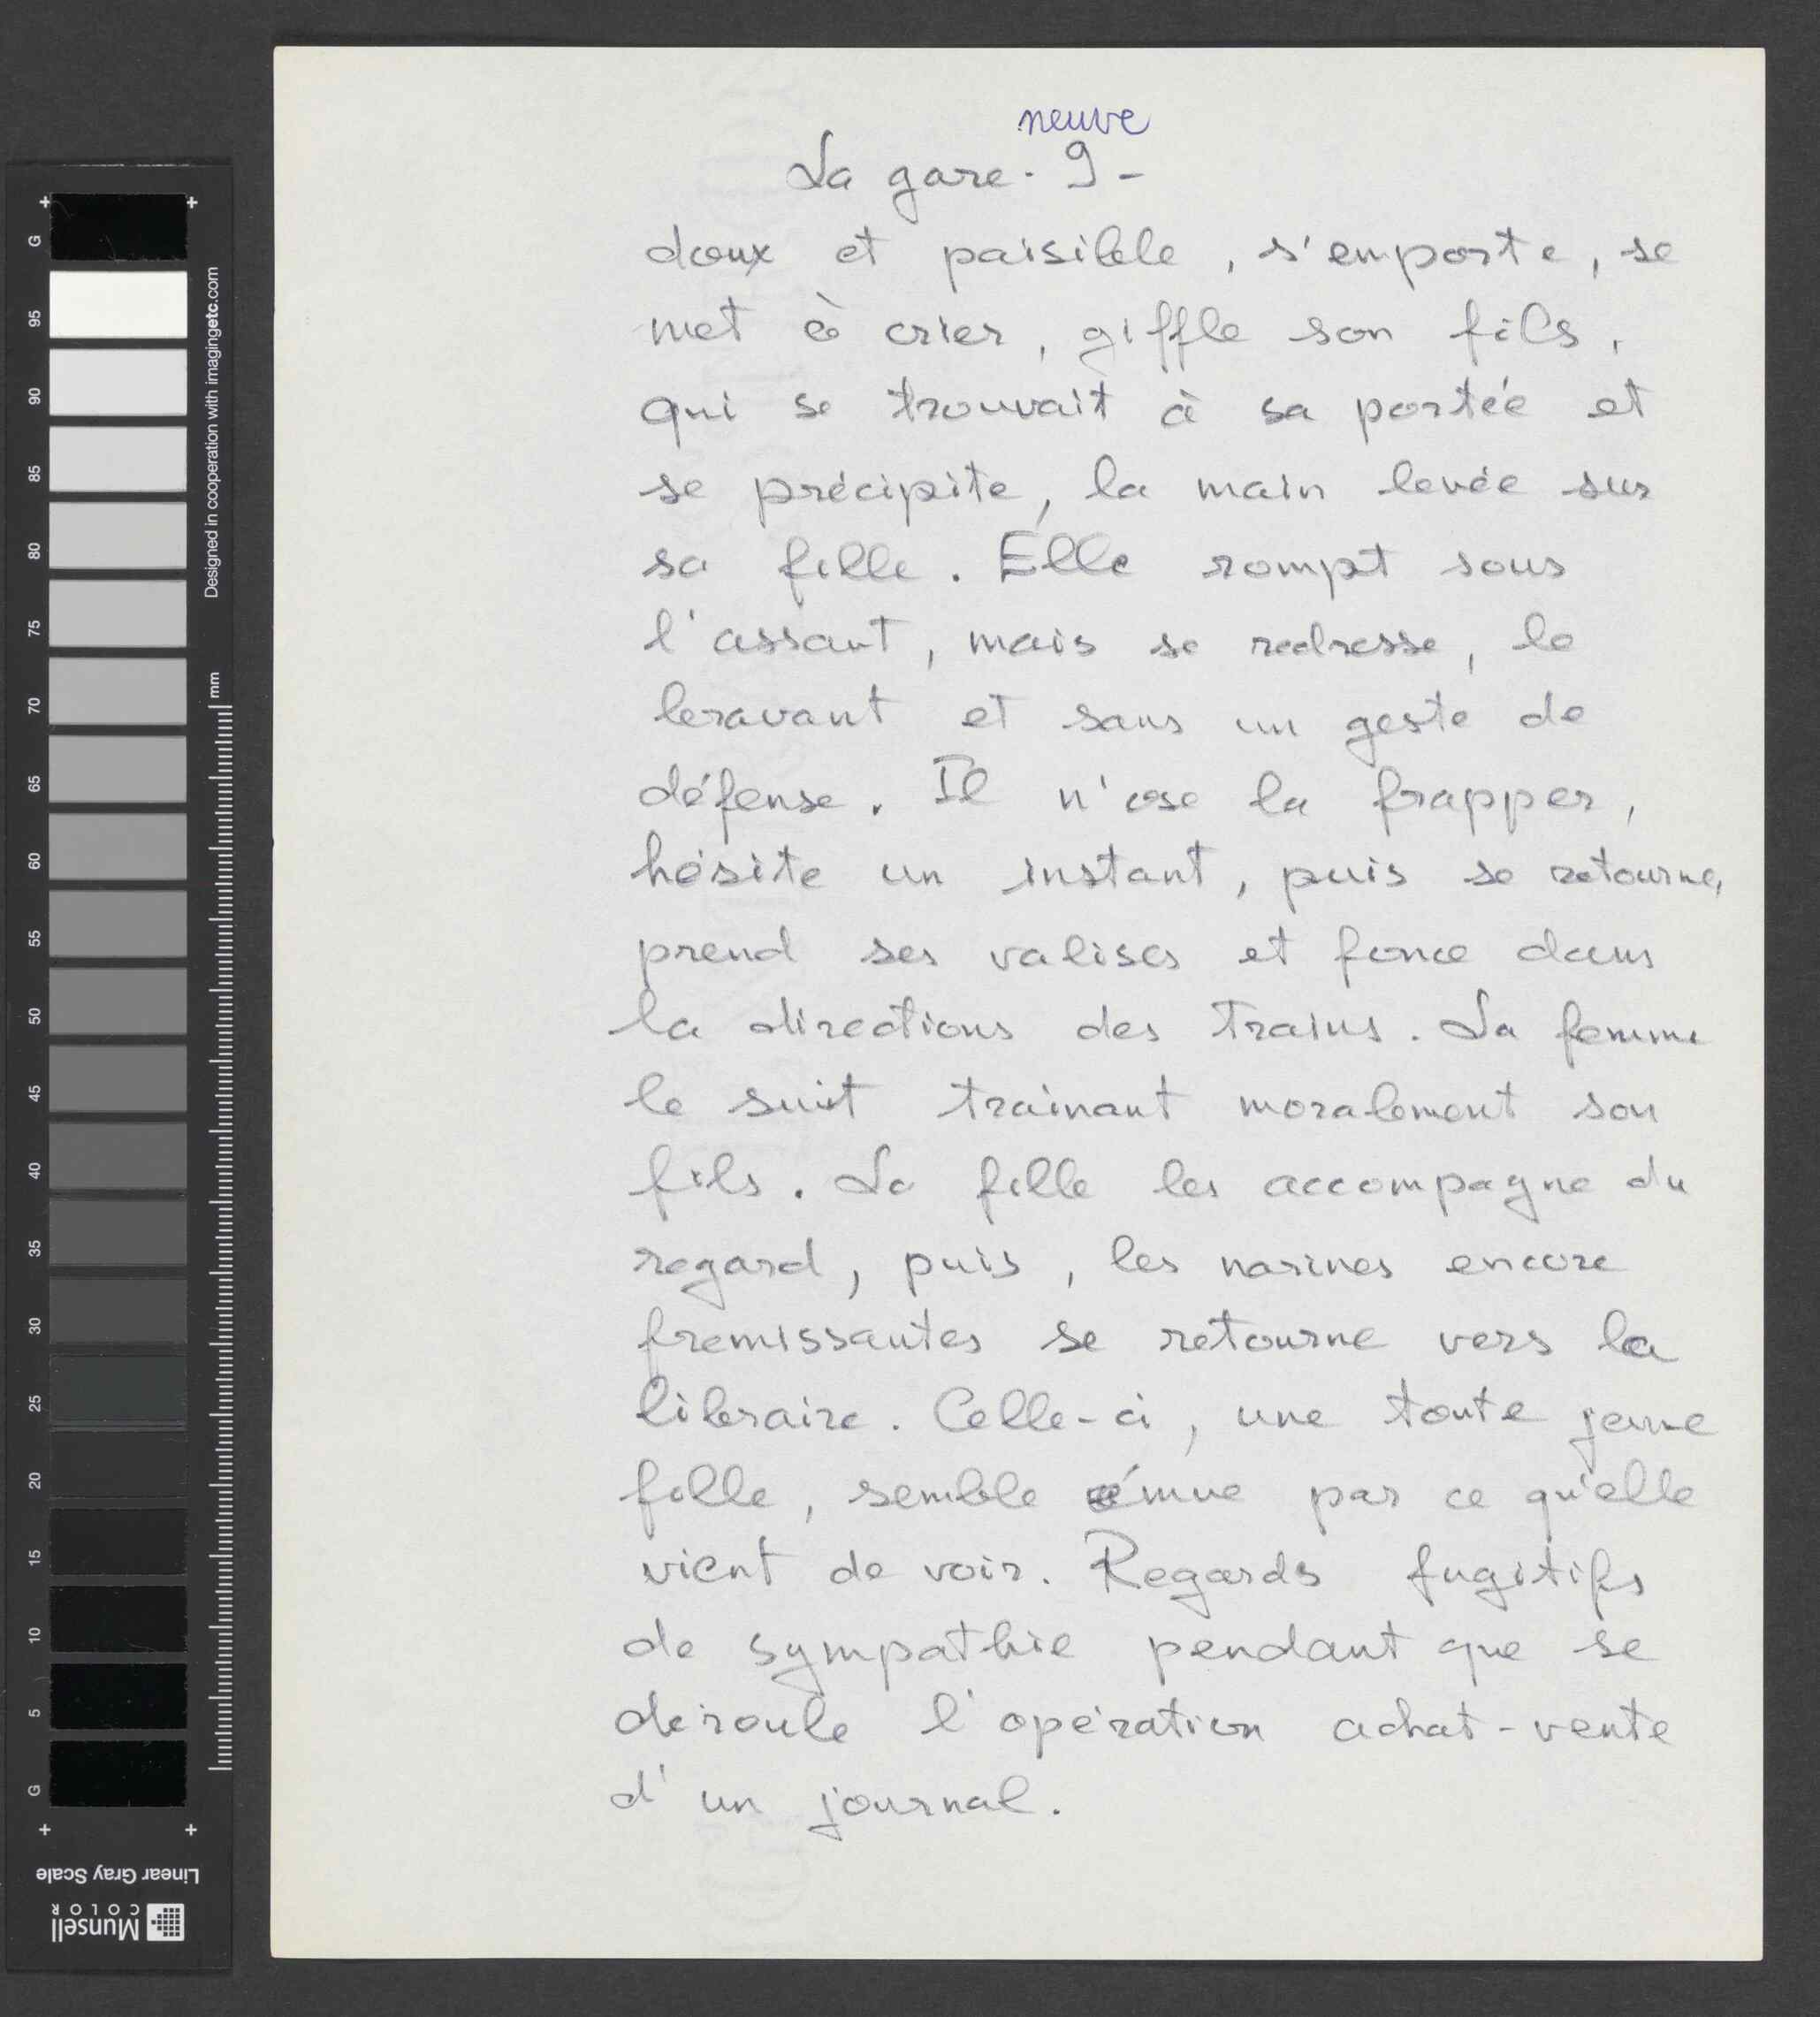 neuve
La gare. 9 -
doux et paisible, s'emporte, se
met à crier, giffle son fils,
qui se trouvait à sa portée et
se précipite, la main levée sur
sa fille. Elle rompt sous
l'assaut, mais se redresse, le
bravant et sans un geste de
défense. Il n'ose la frapper,
hésite un instant, puis se retourne,
prend ses valises et fonce dans
la directions des trains. La femme
le suit trainant moralement son
fils. La fille les accompagne du
regard, puis, les narines encore
fremissantes se retourne vers la
libraire. Celle-ci, une toute jeune
fille, semble émue par ce qu'elle
vient de voir. Regards fugitifs
de sympathie pendant que se
déroule l'opération achat-vente
d'un journal.
G
95
90
85
80
75
70
65
60
55
50
45
40
35
30
25
20
15
10
5
G
Designed in cooperation with imagingetc.com
mm
Linear Gray Scale
Munsell
COLOR